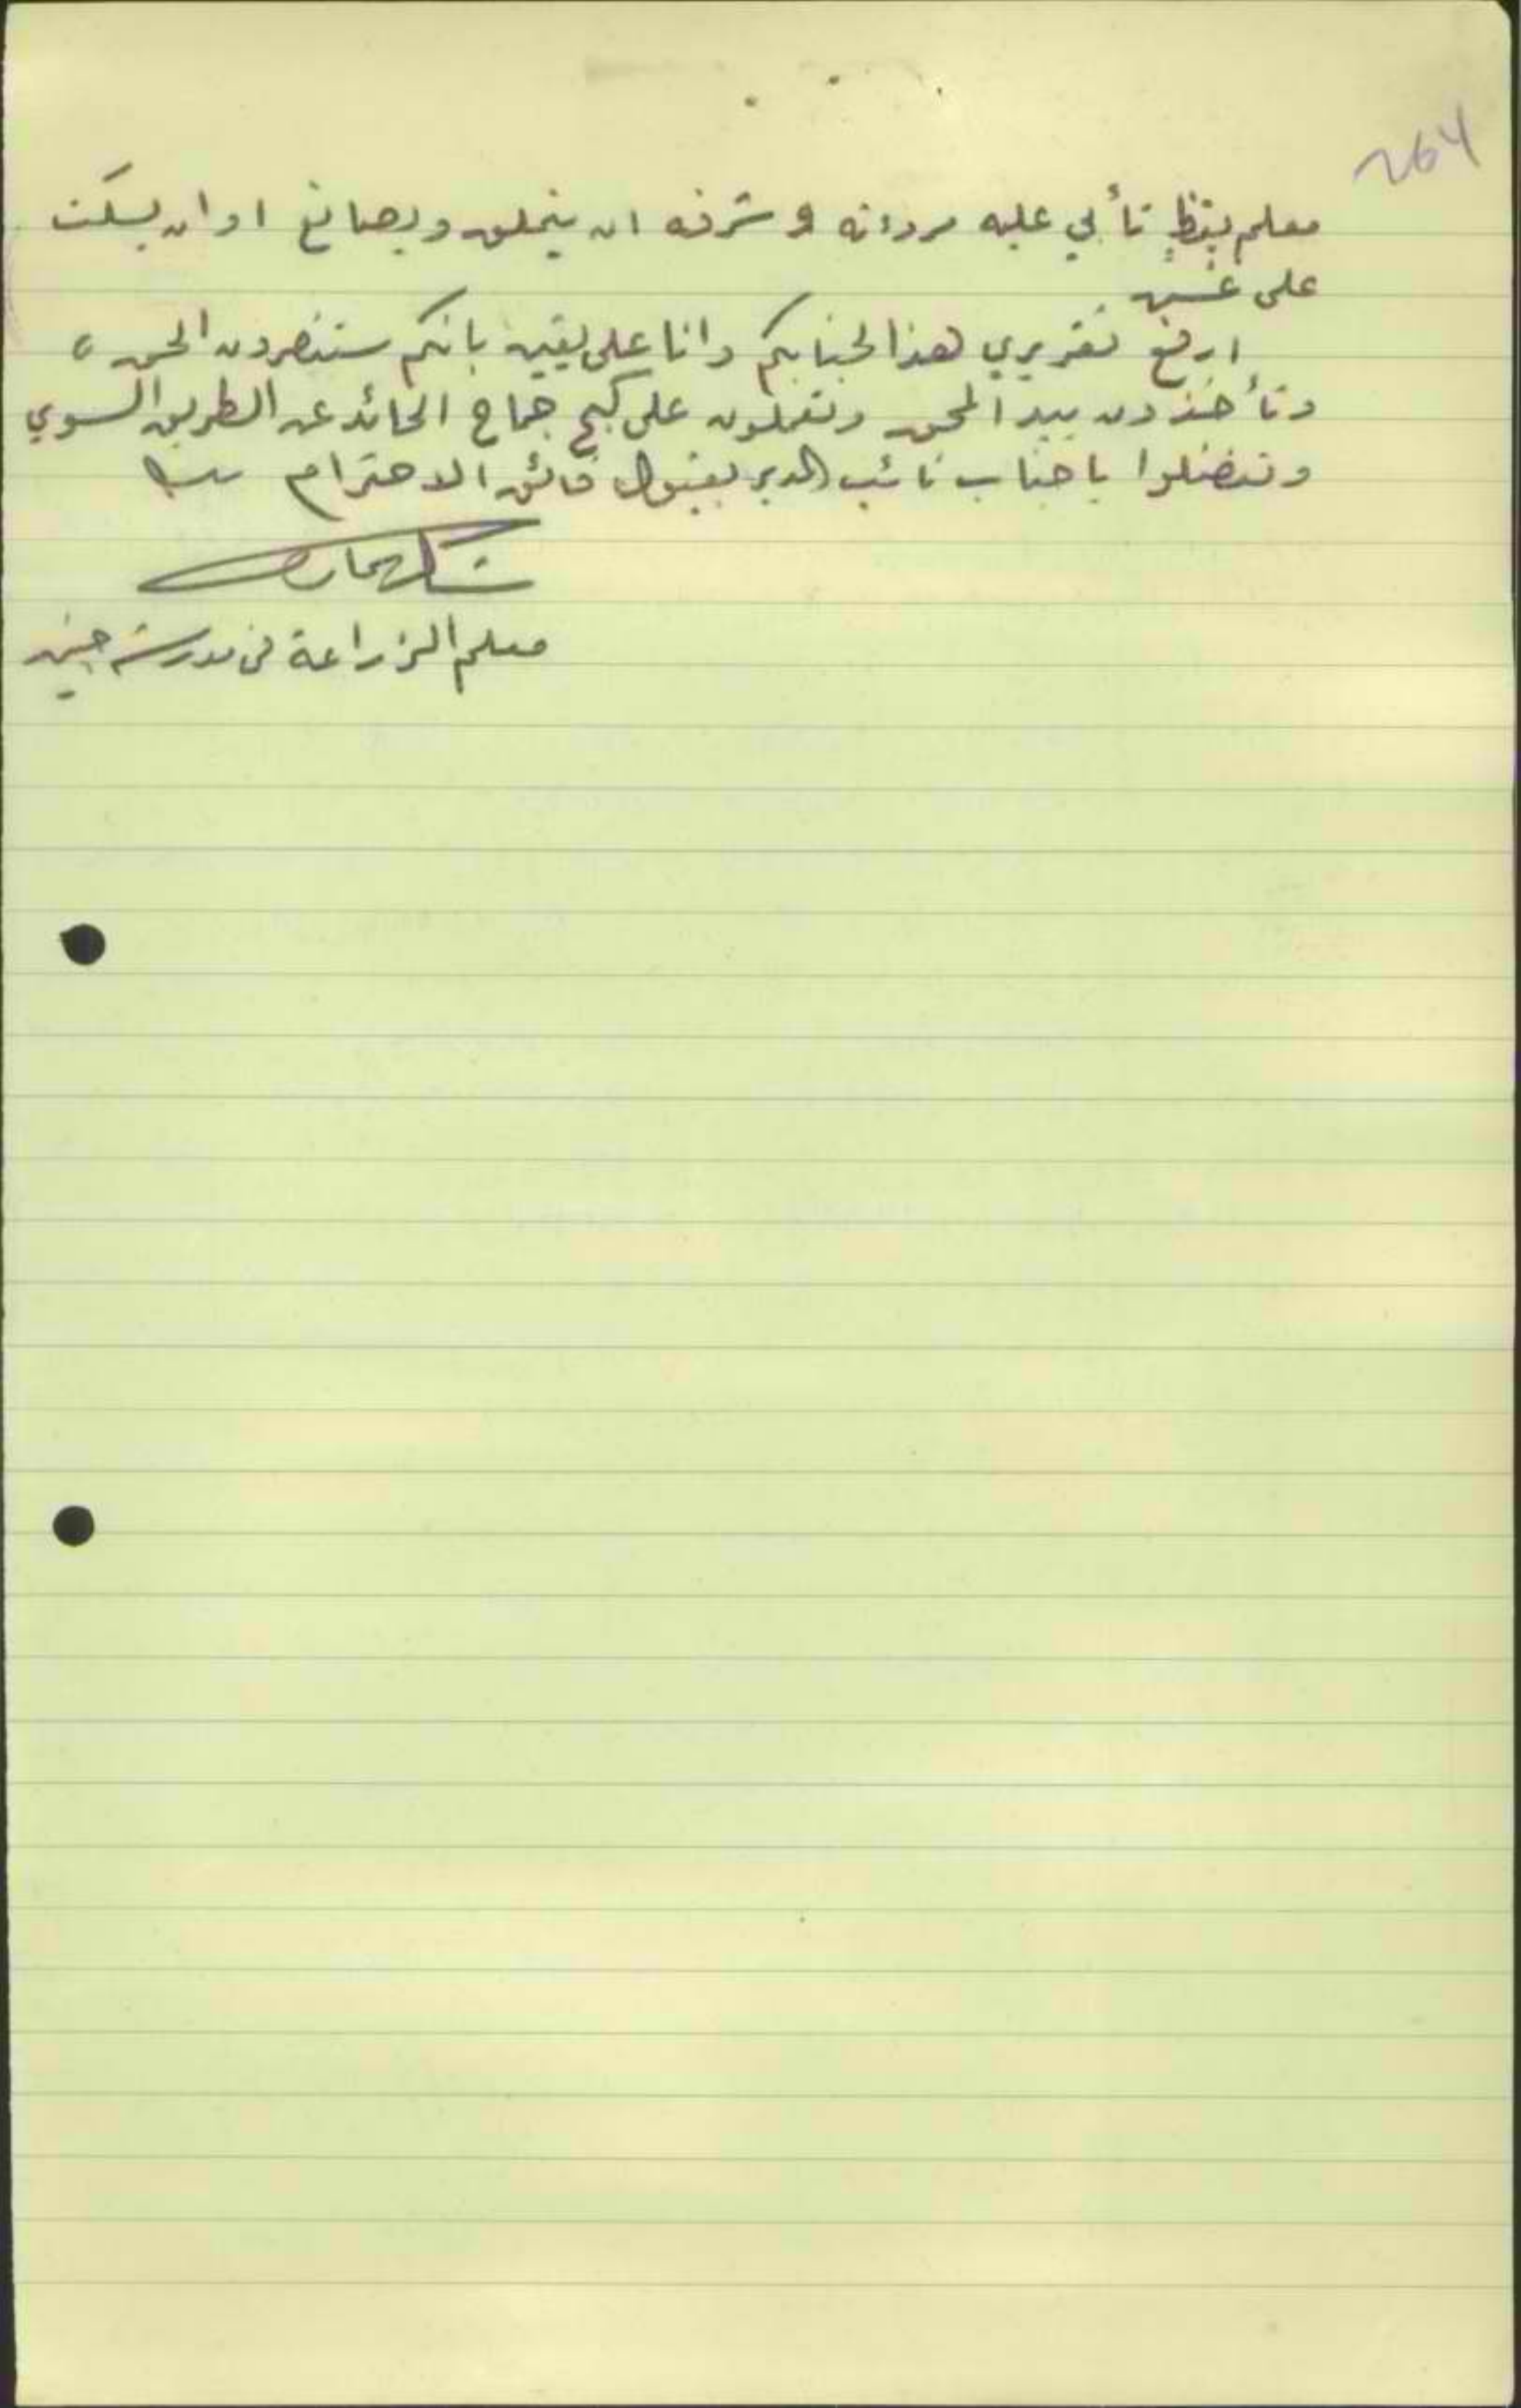 264
معلم يقظٍ تأبي عليه مروءته و شرفه ان يتملق ويصانع او ان يسكت
على غش
ارفع تقريري هذا لجنابكم وانا على يقين بانكم ستنصرون الحق ،
وتأخذون بيد المحق وتعملون على كبح جماح الحائد عن الطريق السوي
وتفضلوا يا جناب نائب المدير بقبول فائق الاحترام
معلم الزراعة في مدرسة جنين